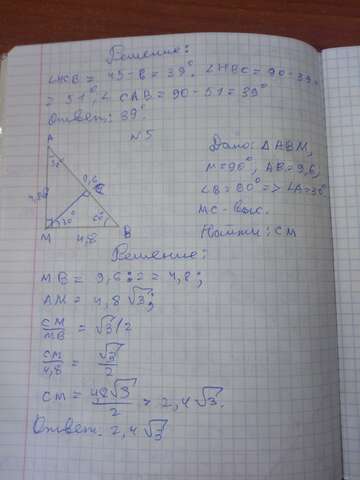 Решение:
∠HCB = 45-6 = 39°. ∠HBC = 90-39=
= 51°, ∠CAB = 90-51 = 39°
Ответ: 39°.
№5
A
30°
9,6
C
4,8
30°
60°
M
4,8
B
Дано: △ABM,
M=90°, AB=9,6;
∠B=60° => ∠A=30°
MC - выс.
Найти: CM
Решение:
MB = 9,6:2 = 4,8;
AM = 4,8√3;
CM/MB = √3/2
CM/4,8 = √3/2
CM = 4,8√3/2 = 2,4√3.
Ответ: 2,4√3